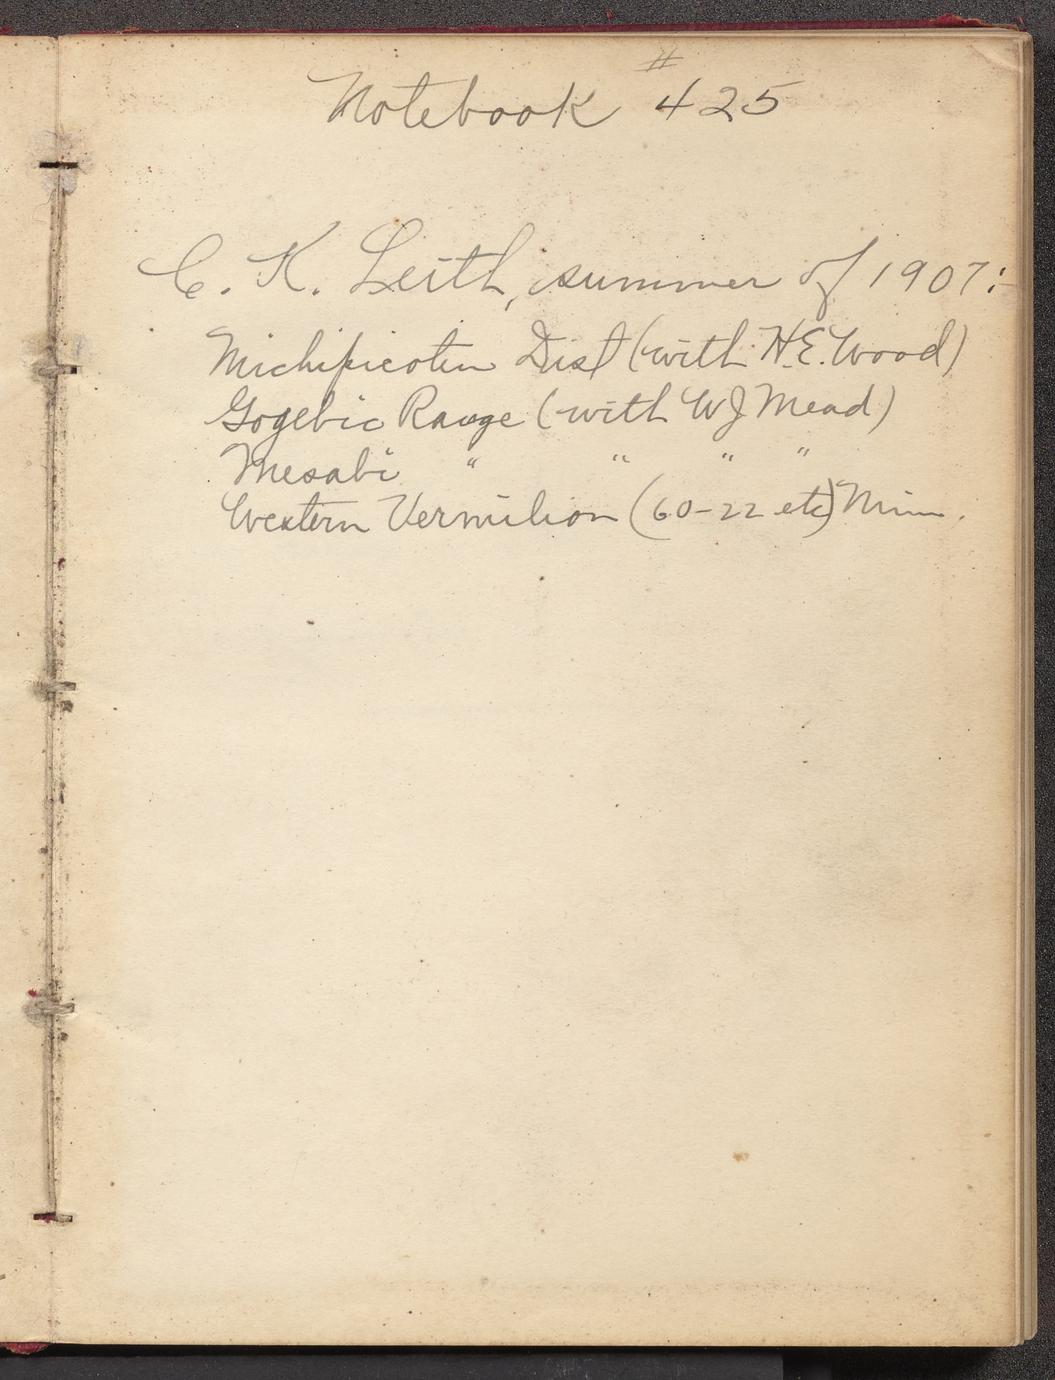 Notebook #425
C. K. Leith, summer of 1907:-
Michipicoten Dist (with H.E. Wood)
Gogebic Range (with WJ Mead)
Mesabi " " " "
Western Vermilion (60-22 etc) Minn.